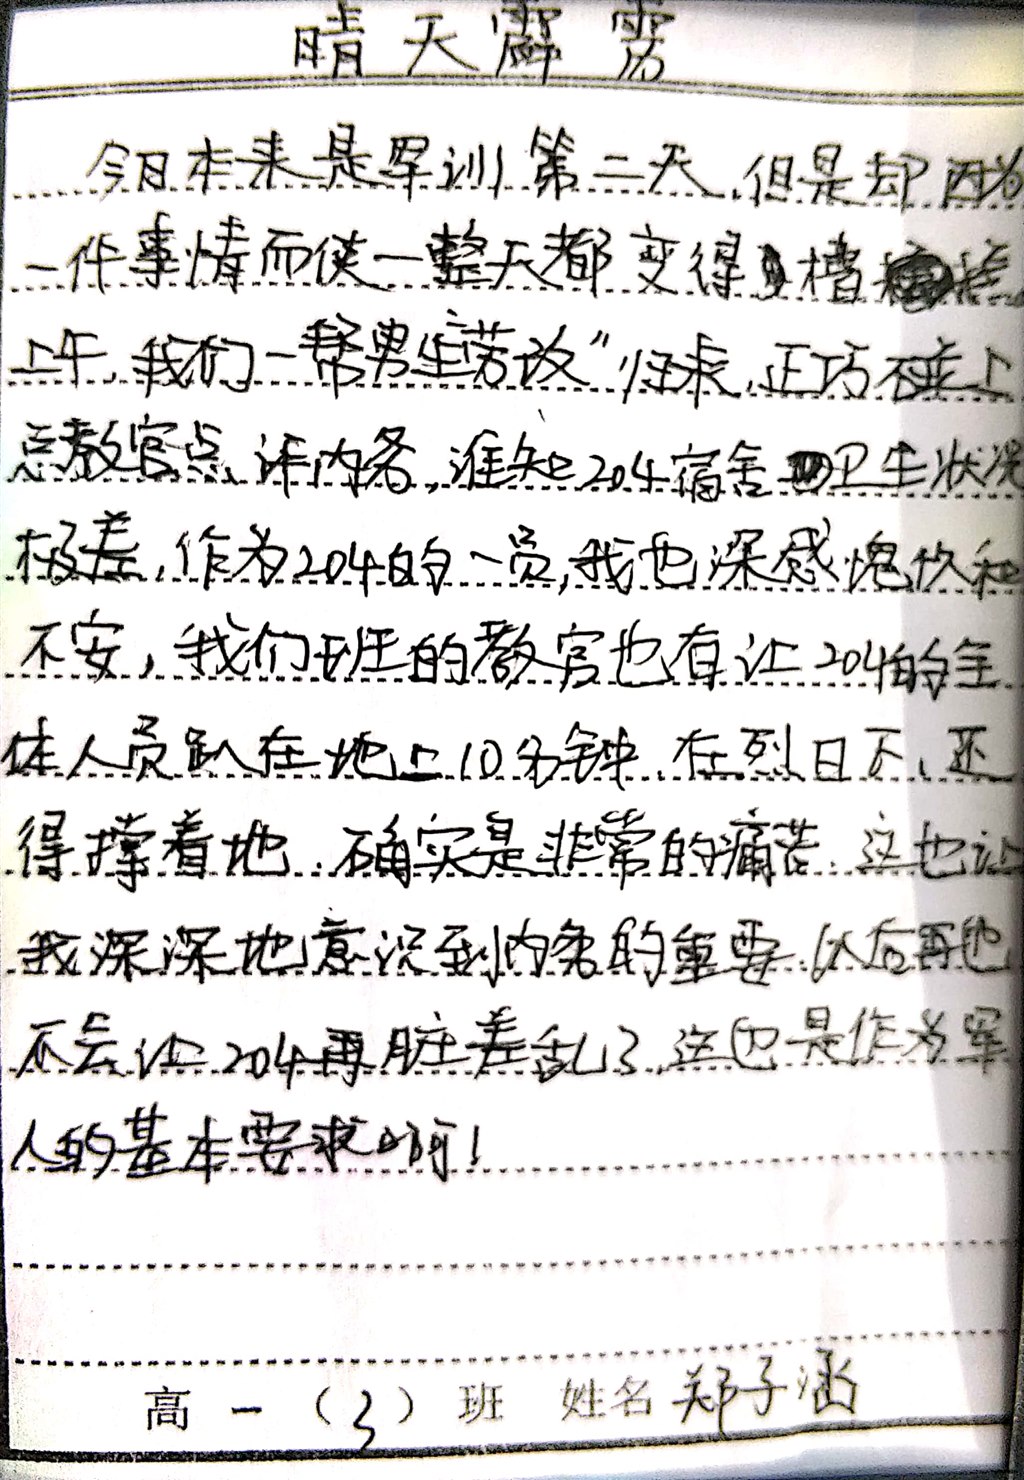 晴天霹雳
今日本来是军训第二天,但是却因为
一件事情而使一整天都变得槽糕
上午,我们一帮男生劳改"归来,正巧碰上
总教官点评内务,谁知204宿舍卫生状况
极差,作为204的一员,我也深感愧疚和
不安,我们班的教官也有让204的全
体人员趴在地上10分钟,在烈日下,还
得撑着地,确实是非常的痛苦,这也让
我深深地意识到内务的重要,以后再也
不会让204再脏差乱了,这也是作为军
人的基本要求啊!
高一(3)班 姓名郑子涵